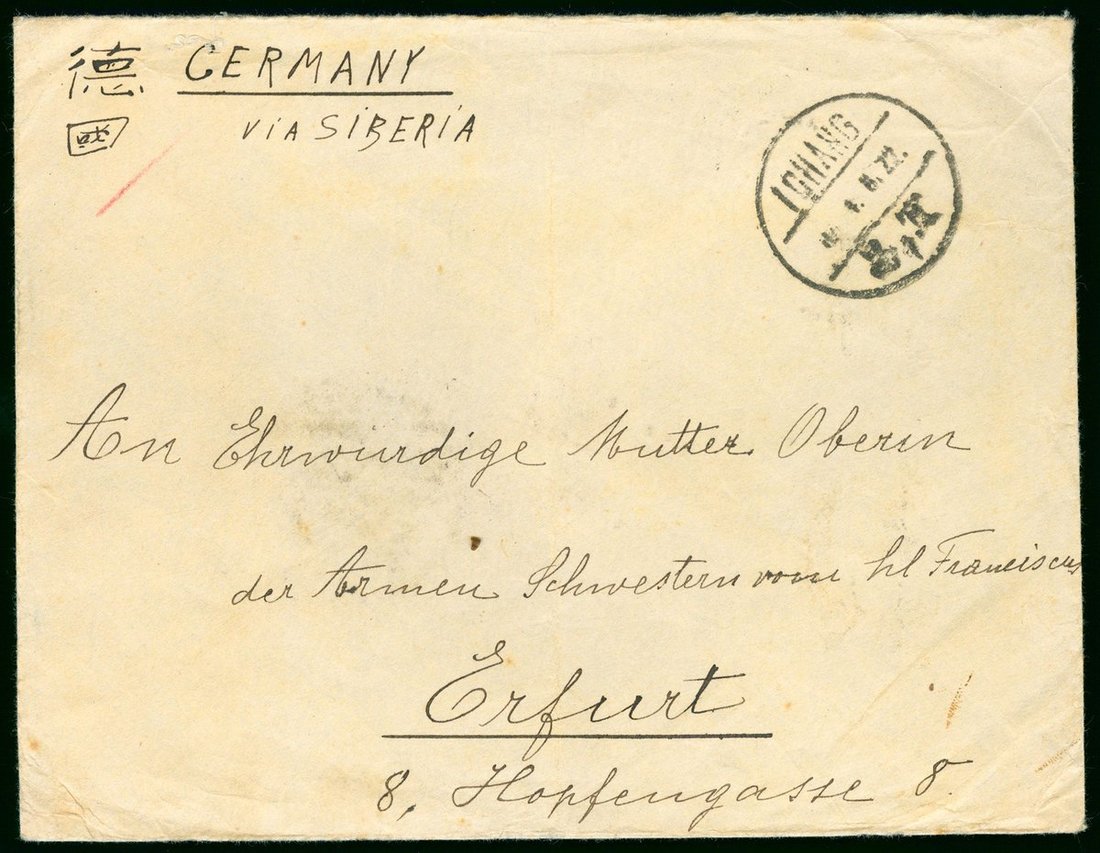 德國
GERMANY
VIA SIBERIA
ICHANG
An Ehrwürdige Mutter Oberin
der Armen Schwestern vom hl Franciscus
Erfurt
8, Hopfengasse 8.